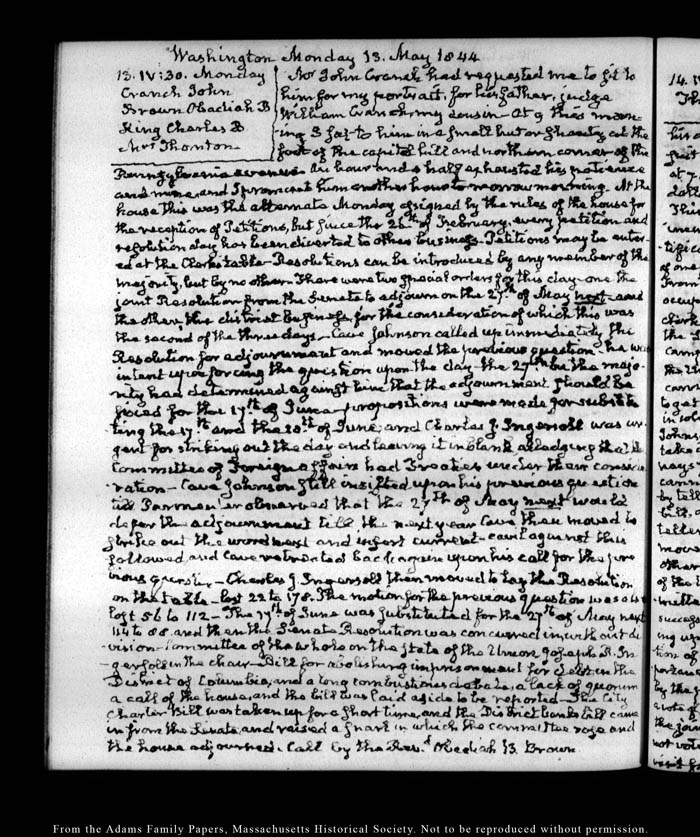 Washington Monday 13. May 1844
13. IV:30. Monday
Cranch John
Brown Obadiah B
King Charles B
Mrs Thornton
Mr John Cranch had requested me to sit to
him for my portrait, for his father, judge
William Cranch my cousin - At 9 this morn-
ing I sat to him in a small hut or shanty at the
foot of the capitol hill and northern corner of the
Pennsylvania avenue. An hour and a half exhausted his patience
and mine, and I promised him another hour tomorrow morning. At the
house this was the alternate Monday assigned by the rules of the house for
the reception of Petitions, but since the 26th of February, every petition and
resolution day has been diverted to other business. Petitions may be enter-
ed at the Clerk's table - Resolutions can be introduced by any member of the
majority, but by no other. There were two special orders for this day - one the
joint Resolution from the Senate to adjourn on the 27th of May next, and
the other, the district business for the consideration of which this was
the second of the three days - Cave Johnson called up immediately the
Resolution for adjournment and moved the previous question - he was
intent upon forcing the question upon the day the 27th but the majo-
rity had determined against him that the adjournment should be
fixed for the 17th of June - propositions were made for substitu
ting the 17th and the 20th of June, and Charles J. Ingersoll was ur-
gent for striking out the day and leaving it in blank alledging that the
Committee of Foreign affairs had Treaties under their conside-
ration - Cave Johnson still insisted upon his previous question
till observed that the 27th of May next would
defer the adjournment till the next year Cave then moved to
strike out the word next and insert current - against this
followed and Cave retreated back again upon his call for the pre
vious question - Charles J. Ingersoll then moved to lay the Resolution
on the table - lost 22 to 178. The motion for the previous question was also
lost 56 to 112 - The 17th of June was substituted for the 27th of May next
114 to 88. and then the Senate Resolution was concurred in without di-
vision - Committee of the whole on the state of the Union Joseph R. In-
gersoll in the chair - Bill for abolishing imprisonment for debt in the
District of Columbia, and a long combustious debate, a lack of quorum
a call of the house, and the bill was laid aside to be reported - The City
Charter Bill was taken up for a short time, and the District banks bill came
in from the Senate, and raised a snarl in which the committee rose and
the house adjourned. Call by the Revd Obadiah B. Brown
From the Adams Family Papers, Massachusetts Historical Society. Not to be reproduced without permission.